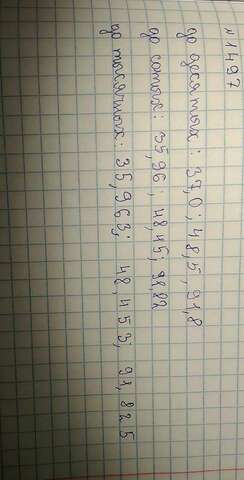 №1497
до десятых: 37,0; 48,5, 91,8
до сотых: 35,96; 48,45; 91,82
до тысячных: 35,963; 48,453; 91,825